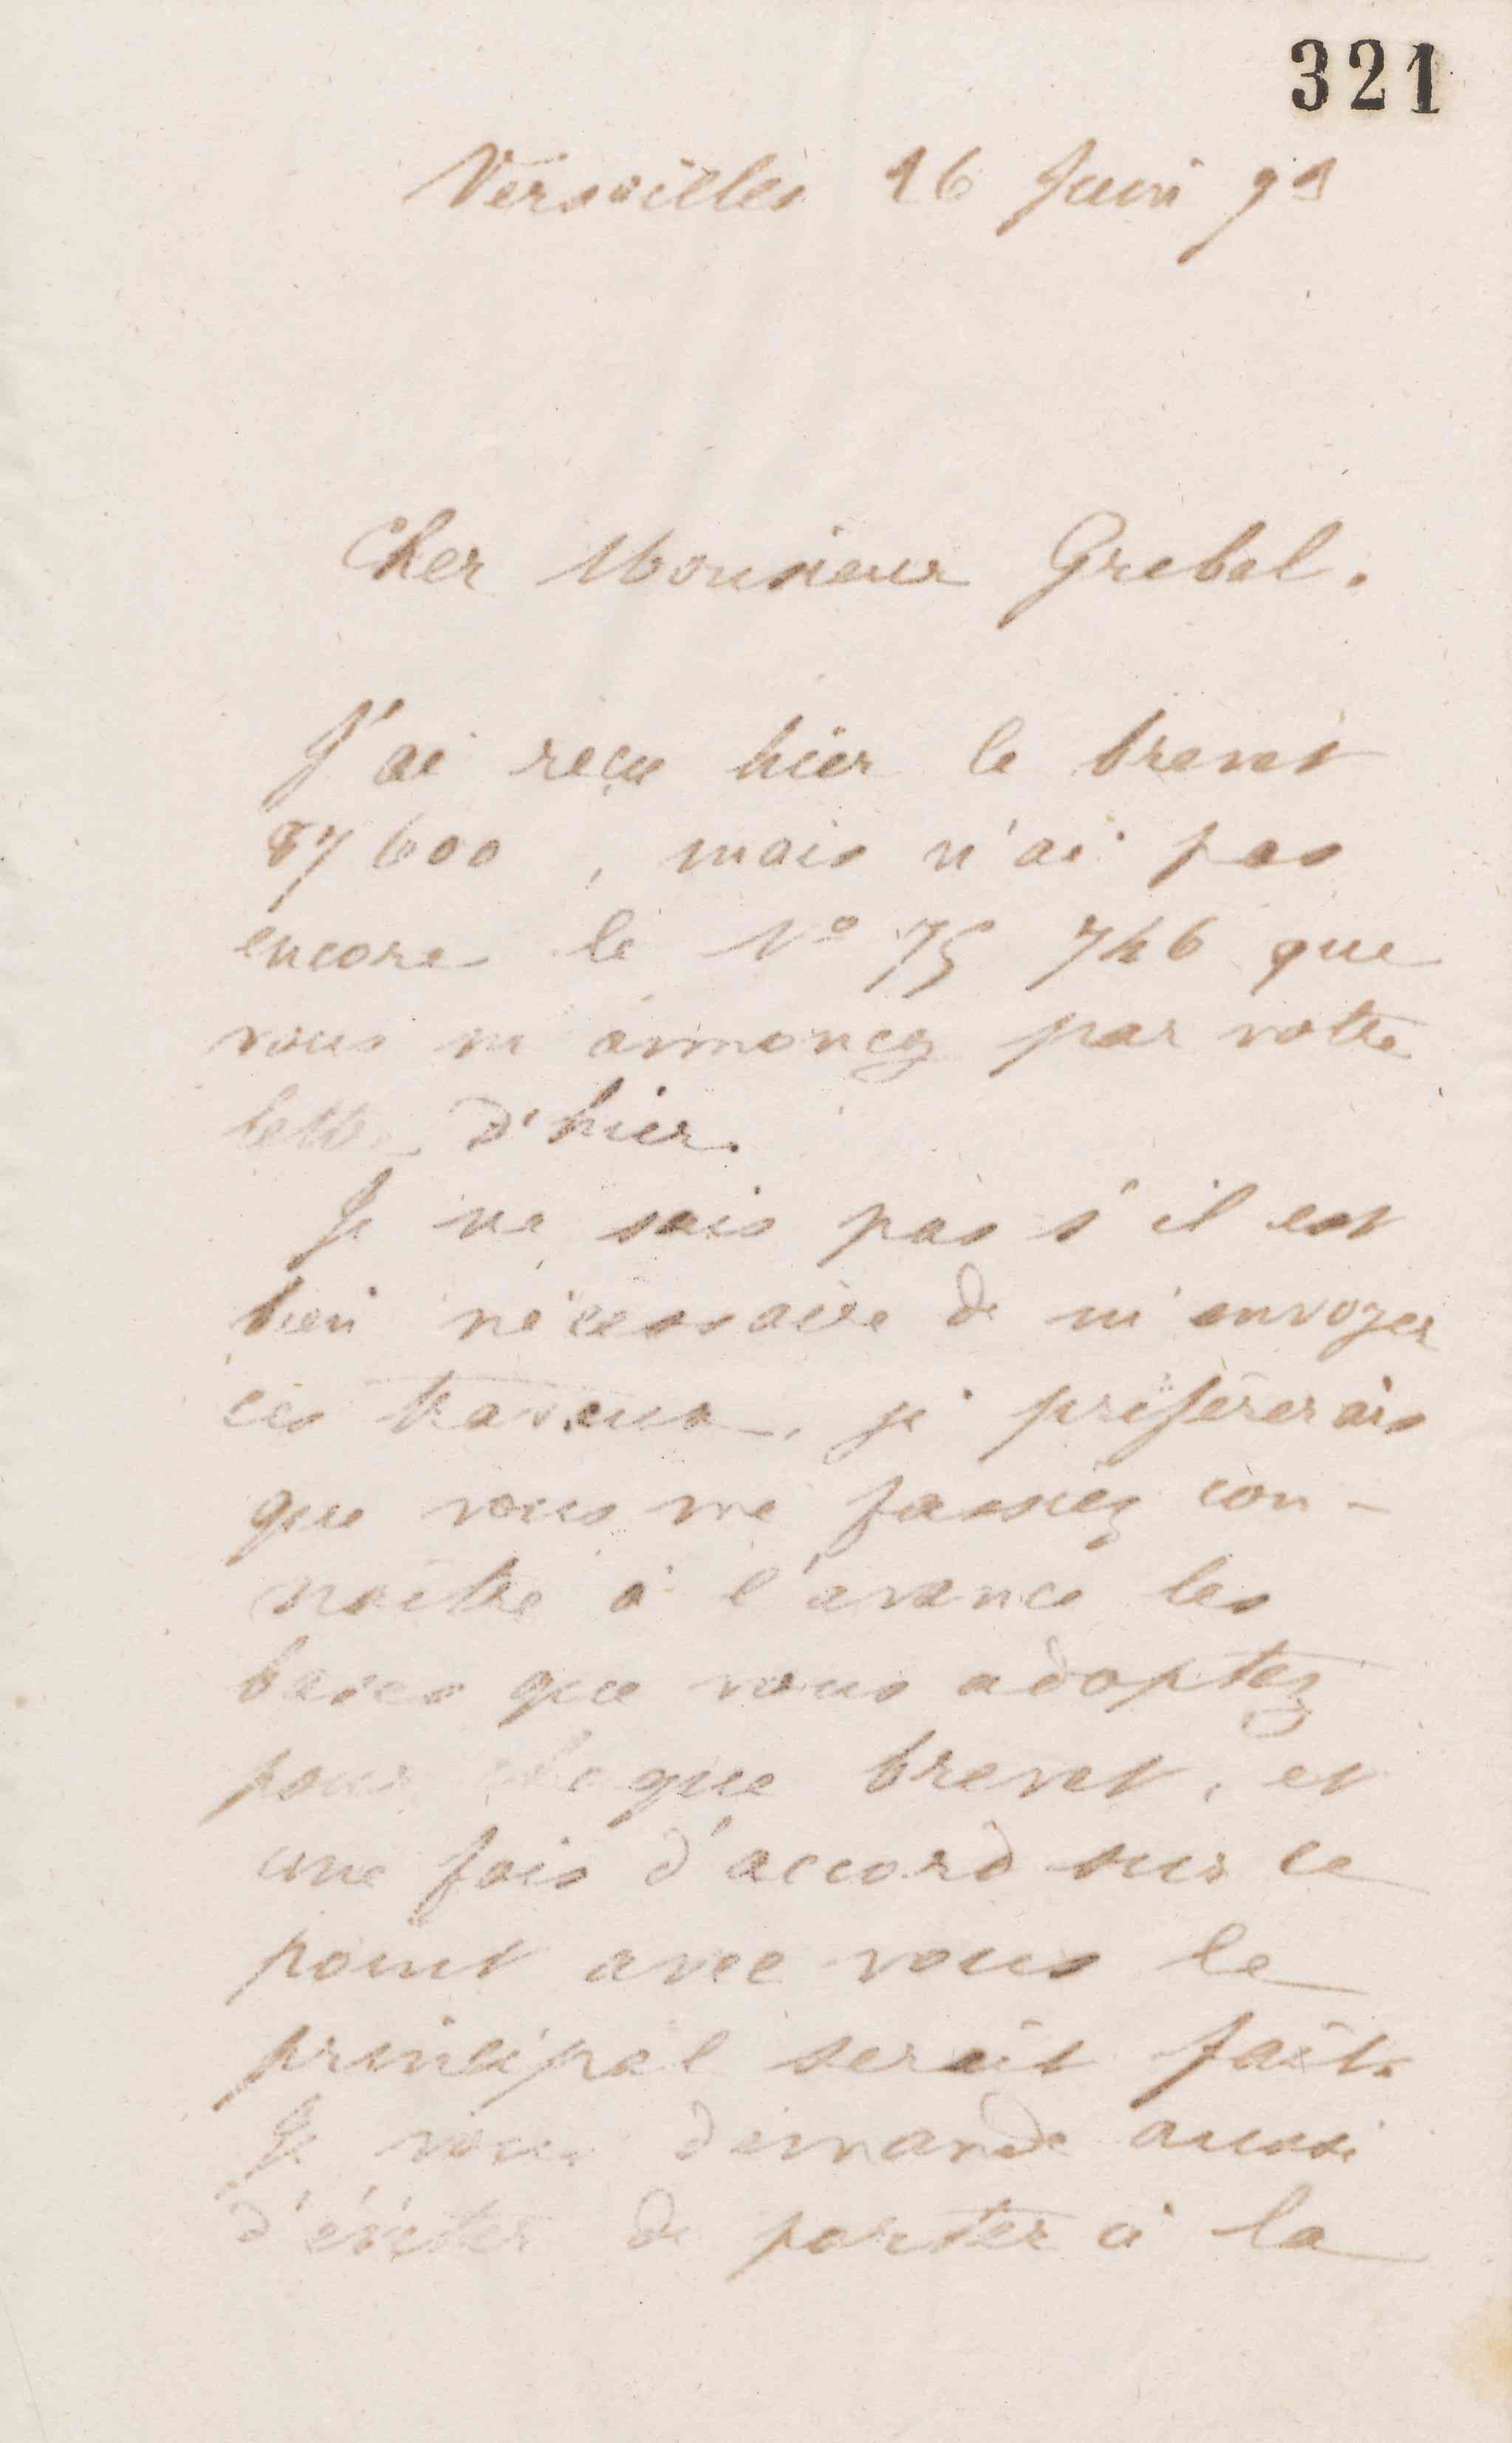 321
Versailles 16 Juin 91
Cher Monsieur Grebel.
J'ai reçu hier le brevet
87600, mais n'ai pas
encore le No 75 746 que
vous m'annoncez par votre
lettre d'hier.
Je ne sais pas s'il est
bien nécessaire de m'envoyer
ces travaux, je préfèrerais
que vous me fassiez con-
naitre à l'avance les
bases que vous adoptez
pour chaque brevet, et
une fois d'accord sur ce
point avec vous le
principal serait fait.
Je vous demande aussi
d'éviter de porter à la